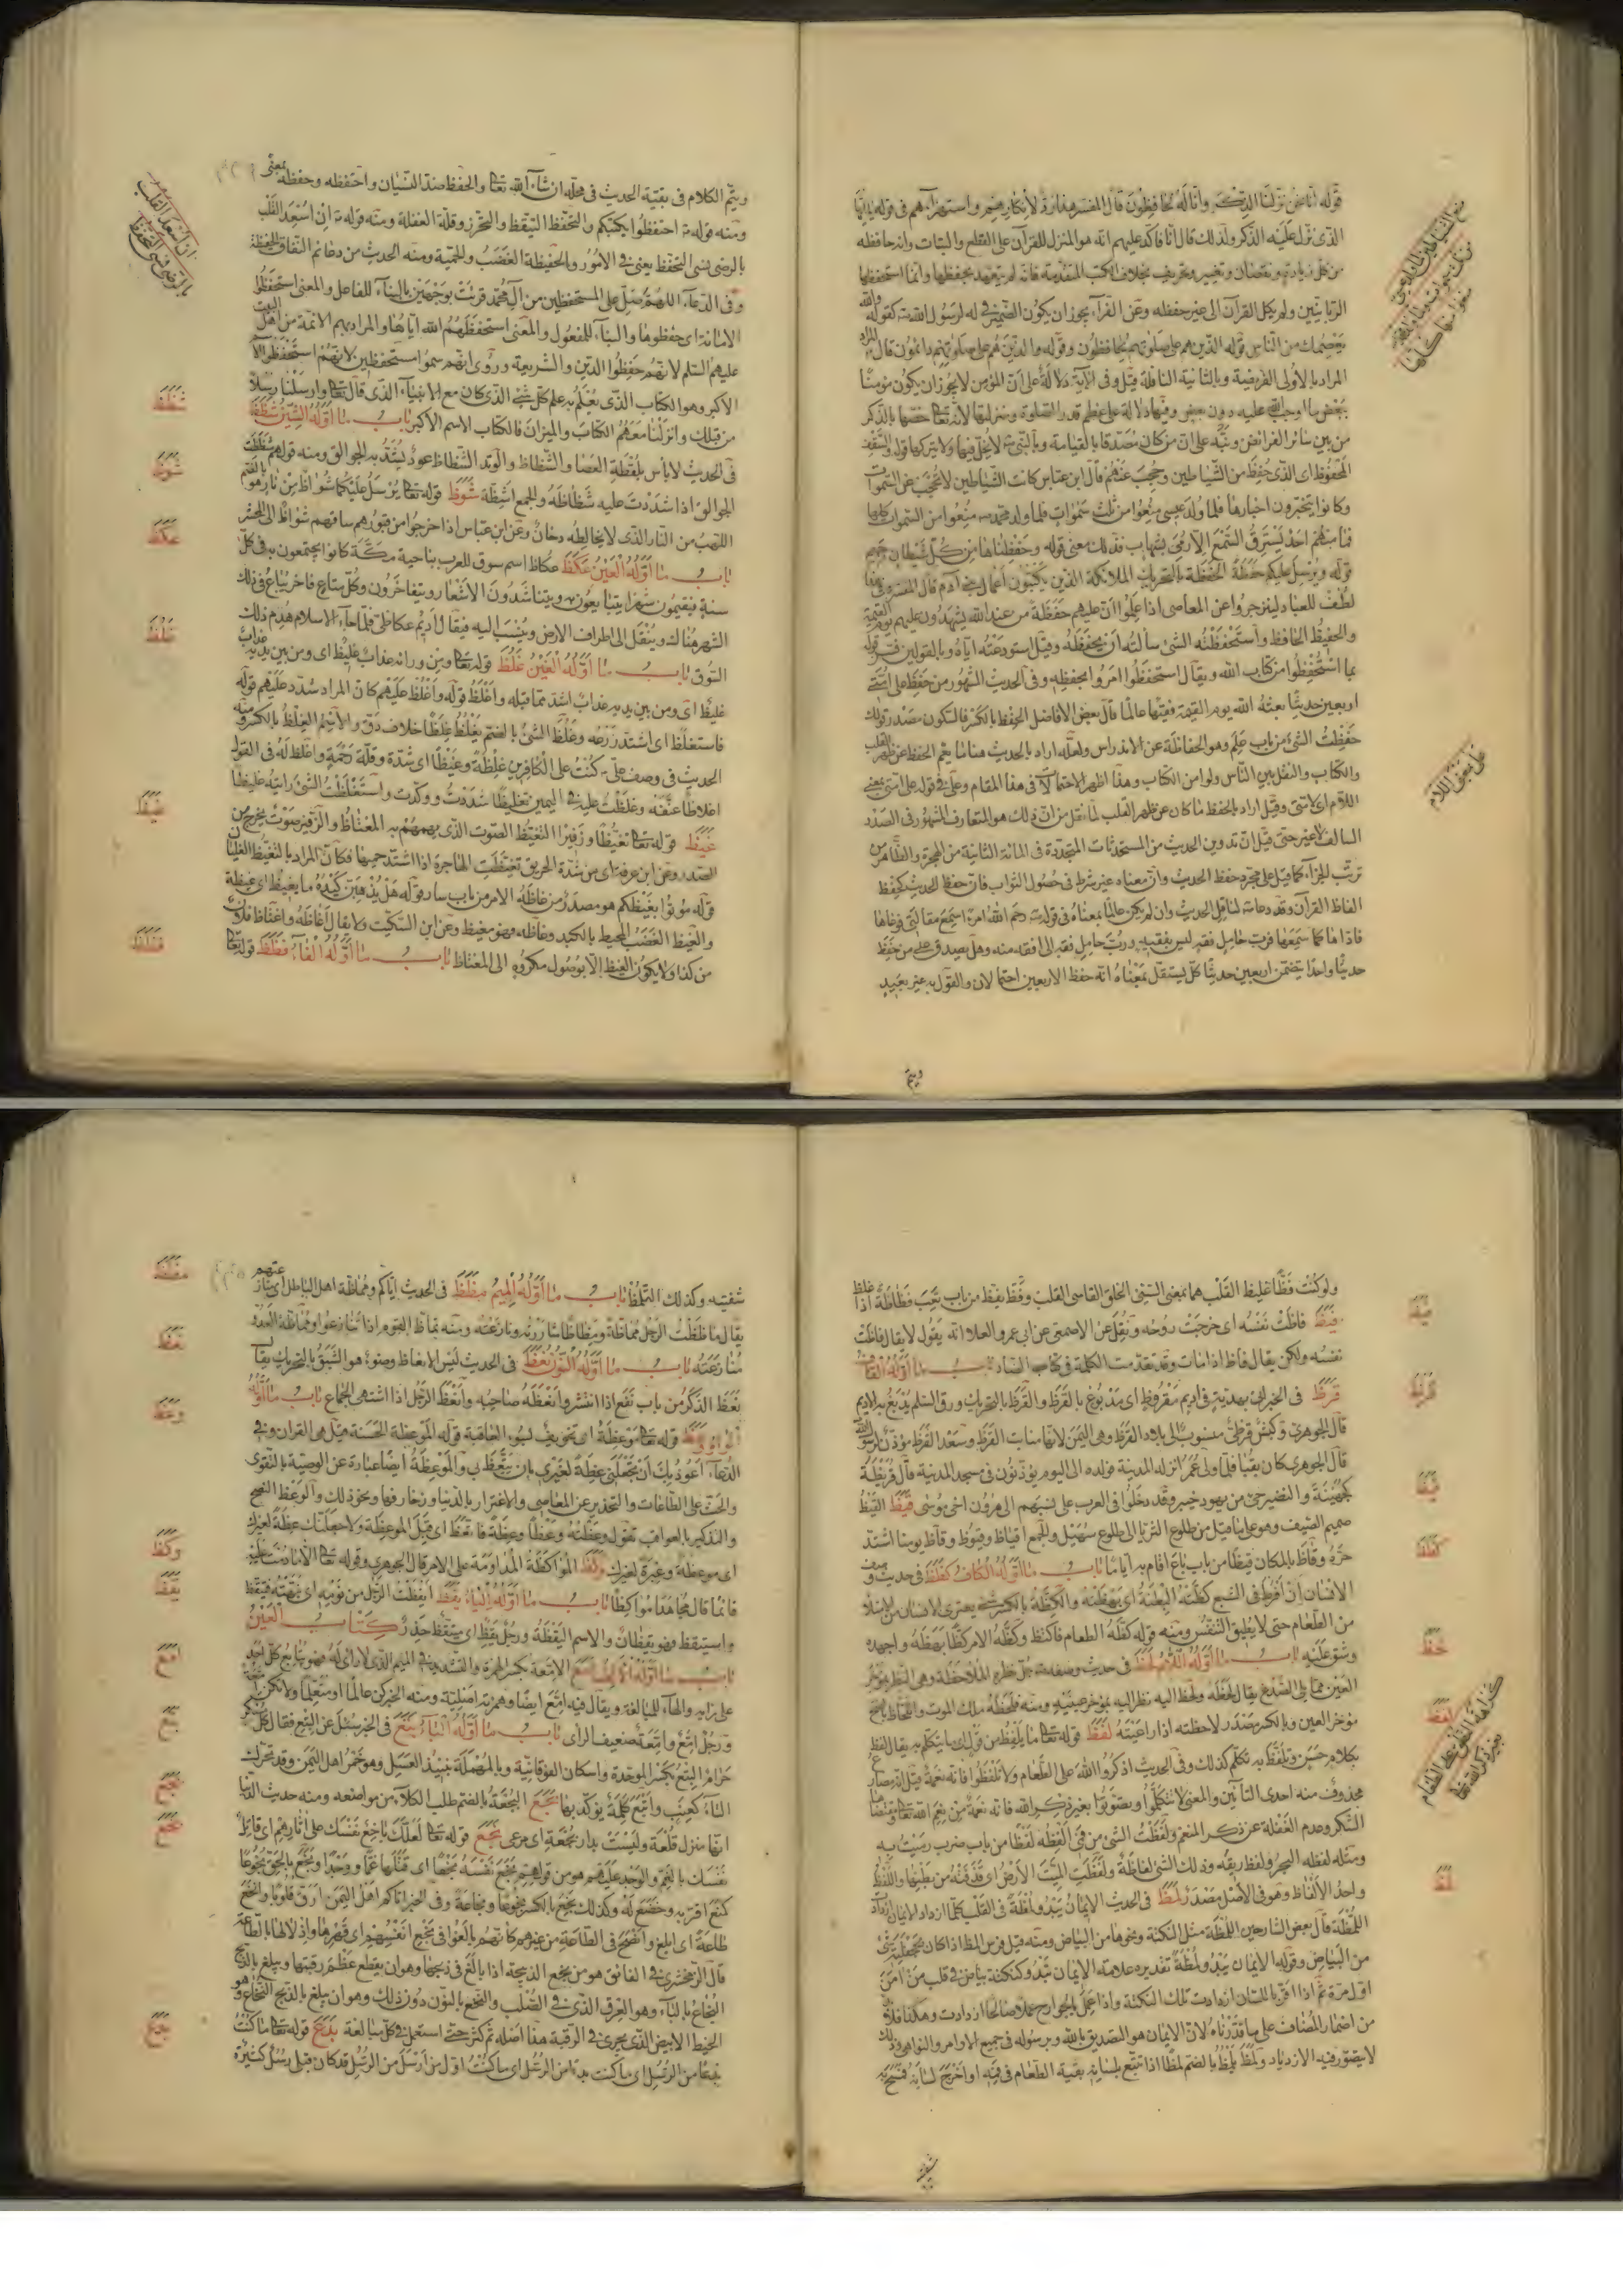 قوله انا نحن نزلنا الذكر وانا له لحافظون قال المفسر هذا رد لانكارهم واستهزائهم فى قوله يا ايها
الذى نزل عليه الذكر ولذلك قال انا فاكد عليهم انه هو المنزل للقرآن على القطع والبتات وانه حافظه
من كل زيادة ونقصان وتغيير وتحريف بخلاف الكتب المتقدمة فانه لم يتعهد بحفظها وانما استحفظها
الربانيين ولم يكل القرآن الى غير حفظه وعن الفراء يجوز ان يكون الضمير فى له لرسول الله كقوله والله
يعصمك من الناس قوله الذين هم على صلوتهم يحافظون وقوله والذين هم على صلوتهم دائمون قال
المراد بالاولى الفريضة وبالثانية النافلة قيل وفى الآية دلالة على ان المؤمن لا يجوز ان يكون مؤمنا
ببعض ما اوجب الله عليه دون بعض وفيها دلالة على عظم قدر الصلوة ومنزلتها لانه تعالى خصها بالذكر
من بين سائر الفرائض ونبه على ان من كان مصدقا بالقيامة وبالنبى لا يخل فيها ولا يتركها قوله والسقف
المحفوظ اى الذى حفظ من الشياطين وحجب عنهم قال ابن عباس كانت الشياطين لا تحجب عن السموات
وكانوا يتخبرون اخبارها فلما ولد عيسى منعوا من ثلث سموات فلما ولد محمد منعوا من السموات كلها
فما منهم احد يسترق السمع الا رمى بشهاب فذلك معنى قوله وحفظناها من كل شيطان رجيم
قوله ويرسل عليكم حفظة الحفظة بالتحريك الملائكة الذين يكتبون اعمال بنى آدم قال المفسر وفى هذا
لطف للعباد لينزجروا عن المعاصى اذا علموا ان عليهم حفظة من عند الله يشهدون عليهم يوم القيمة
والحفيظ الحافظ واستحفظته الشئ سألته ان يحفظه وقيل استودعته اياه وبالقولين فسر قوله
بما استحفظوا من كتاب الله ويقال استحفظوا امروا بحفظه وفى الحديث المشهور من حفظ على امتى
اربعين حديثا بعثه الله يوم القيمة فقيها عالما قال بعض الافاضل الحفظ بالكسر فالسكون مصدر قولك
حفظت الشئ من باب علم وهو الحفاظة عن الاندراس ولعله اراد بالحديث هنا ما يعم الحفظ عن ظهر القلب
والكتاب والنقل بين الناس ولو من الكتاب وهذا اظهر الاحتمالات فى هذا المقام وعلى فى قوله على امتى بمعنى
اللام اى لامتى وقيل اراد بالحفظ ما كان عن ظهر القلب لما نقل من ان ذلك هو المتعارف المشهور فى الصدر
السالف لا غير حتى قيل ان تدوين الحديث من المستحدثات المتجددة فى المائة الثانية من الهجرة والظاهر من
ترتب الجزاء كما قيل على مجرد حفظ الحديث وان معناه غير شرط فى حصول الثواب فان حفظ الحديث كحفظ
الفاظ القرآن وقد دعا لناقل الحديث وان لم يكن عالما بمعناه فى قوله رحم الله امرءا سمع مقالتى فوعاها
فاداها كما سمعها فرب حامل فقه ليس بفقيه ورب حامل فقه الى افقه منه وهل يصدق على من حفظ
حديثا واحدا يتضمن اربعين حديثا كل يستقل بمعناه انه حفظ الاربعين احتمالان والقول به غير بعيد
ويتم
على بمعنى اللام
ويتم الكلام فى بقية الحديث فى محله ان شاء الله تعالى والحفظ ضد النسيان واحتفظه وحفظه بمعنى
ومنه قوله احتفظوا بكتبكم والتحفظ التيقظ والتحرز وقلة الغفلة ومنه قوله ان اسعد القلب
بالرضى نسى التحفظ يعنى فى الامور والحفيظة الغضب والحمية ومنه الحديث من دعائم النفاق الحفيظة
وفى الدعاء اللهم صل على المستحفظين من آل محمد قرئت بوجهين بالبناء للفاعل والمعنى استحفظوا
الامانة اى حفظوها والبناء للمفعول والمعنى استحفظهم الله اياها والمراد بهم الائمة من اهل البيت
عليهم السلم لانهم حفظوا الدين والشريعة وروى انهم سموا مستحفظين لانهم استحفظوا الاسم
الاكبر وهو الكتاب الذى يعلم به علم كل شئ الذى كان مع الانبياء الذى قال تعالى وارسلنا رسلا
من قبلك وانزلنا معهم الكتاب والميزان فالكتاب الاسم الاكبر باب ما اوله الشين شظظ
فى الحديث لا بأس بلقطة العصا والشظاظ والوتد الشظاظ عود يشد به الجوالق ومنه قولهم شظظت
الجوالق اذا شددت عليه شظاظه والجمع اشظة شوظ قوله تعالى يرسل عليكما شواظ من نار هو بالضم
اللهب من النار الذى لا يخالطه دخان وعن ابن عباس اذا خرجوا من قبورهم ساقهم شواظ الى المحشر
باب ما اوله العين عكظ عكاظ اسم سوق للعرب بناحية مكة كانوا يجتمعون به فى كل
سنة فيقيمون شهرا يتبايعون ويتناشدون الاشعار ويتفاخرون وكل متاع فاخر يباع فى ذلك
الشهر هناك وينقل الى اطراف الارض وينسب اليه فيقال اديم عكاظى فلما جاء الاسلام هدم ذلك
السوق باب ما اوله الغين غلظ قوله تعالى ومن ورائه عذاب غليظ اى ومن بين يديه عذاب
غليظ اى ومن بين يديه عذاب اشد مما قبله واغلظ قوله واغلظ عليهم كان المراد شدد عليهم قوله
فاستغلظ اى اشتد زرعه وغلظ الشئ بالضم يغلظ غلظا خلاف دق والاسم الغلظ بالكسر ومنه
الحديث فى وصف على كنت على الكافرين غلظة وغيظا اى شدة وقلة رحمة واغلظ له فى القول
اغلاظا عنفه وغلظت عليه فى اليمين تغليظا شددت ووكدت واستغلظت الشئ رايته غليظا
غيظ قوله تعالى تغيظا وزفيرا التغيظ الصوت الذى يهمهم به المغتاظ والزفير صوت يخرج من
الصدر وعن ابن عرفة اى من شدة الحريق تغيظت الهاجرة اذا اشتد حميها فكان المراد بالتغيظ الغليان
قوله موتوا بغيظكم هو مصدر من غاظه الامر من باب سار قوله هل يذهبن كيده ما يغيظ اى غيظه
والغيظ الغضب المحيط بالكبد وغاظه فهو مغيظ وعن ابن السكيت ولا يقال اغاظه واغتاظ فلان
من كذا ولا يكون الغيظ الا بوصول مكروه الى المغتاظ باب ما اوله الفاء فظظ قوله تعالى
شظظ
شوظ
عكظ
غلظ
غيظ
فظظ
ولو كنت فظا غليظ القلب هما بمعنى السيئ الخلق القاسى القلب وفظ يفظ من باب تعب فظاظة اذا غلظ
فيظ فاظت نفسه اى خرجت روحه ونقل عن الاصمعى عن ابى عمرو العلا انه يقول لا يقال فاظت
نفسه ولكن يقال فاظ اذا مات وقد تقدمت الكلمة فى كتاب الضاد باب ما اوله القاف
قرظ فى الخبر اتى بهدية فى اديم مقروظ اى مدبوغ بالقرظ والقرظ بالتحريك ورق السلم يدبغ به الاديم
قال الجوهرى وكبش قرظى منسوب الى بلاد القرظ وهى اليمن لانها منابت القرظ وسعد القرظ مؤذن رسول الله
قال الجوهرى كان بقبا فلما ولى عمر انزله المدينة فولده الى اليوم يؤذنون فى مسجد المدينة قال قريظة
كجهينة والنضير حى من يهود خيبر وقد دخلوا فى العرب على نسبهم الى هرون اخى موسى قيظ القيظ
صميم الصيف وهو على ما قيل من طلوع الثريا الى طلوع سهيل والجمع اقياظ وقيوظ وقاظ يومنا اشتد
حره وقاظ بالمكان قيظا من باب باع اقام به اياما باب ما اوله الكاف كظظ فى حديث وصف
الانسان ان افرط فى الشبع كظته البطنة اى بهظته والكظة بالكسر شئ يعترى الانسان من الامتلاء
من الطعام حتى لا يطيق التنفس ومنه قوله كظه الطعام فاكتظ وكظه الامر كظا بهظه واجهده
وشق عليه باب ما اوله اللام لحظ فى حديث وصفه جل نظره الملاحظة وهى النظر بمؤخر
العين مما يلى الصدغ يقال لحظه ولحظ اليه نظر اليه بمؤخر عينيه ومنه فلحظه ملك الموت واللحاظ بالفتح
مؤخر العين وبالكسر مصدر لاحظته اذا راعيته لفظ قوله تعالى ما يلفظ من قول اى ما يتكلم به يقال لفظ
بكلام حسن وتلفظ به تكلم كذلك وفى الحديث اذكروا الله على الطعام ولا تلفظوا فانه نعمة قيل انه مضارع
محذوف منه احدى التائين والمعنى لا تتكلموا وتصوتوا بغير ذكر الله فانه نعمة من نعم الله تعالى
الشكر وعدم الغفلة عن ذكر المنعم ولفظت الشئ من فى الفظه لفظا من باب ضرب رميت به
ومثله لفظه البحر ولفظ ريقه وذلك الشئ لفاظة ولفظت الميت الارض اى قذفته من بطنها واللفظ
واحد الالفاظ وهو فى الاصل مصدر لمظ فى الحديث الايمان يبدو لمظة فى القلب كلما ازداد الايمان ازدادت
اللمظة قال بعض الشارحين اللمظة مثل النكتة ونحوها من البياض ومنه قيل فرس المظ اذا كان بجحفلته شئ
من البياض وقوله الايمان يبدو لمظة تقديره علامة الايمان تبدو كنكتة بياض فى قلب من آمن
اول مرة ثم اذا اقر باللسان ازدادت تلك النكتة واذا عمل بالجوارح عملا صالحا ازدادت وهكذا فلا بد
من اضمار المضاف على ما قدرناه لان الايمان هو التصديق بالله وبرسوله فى جميع الاوامر والنواهى وذلك
لا يتصور فيه الازدياد ولمظ يلمظ بالضم لمظا اذا تتبع بلسانه بقية الطعام فى فمه او اخرج لسانه فمسح به
شفتيه
فيظ
قرظ
قيظ
كظظ
لحظ
لفظ
لمظ
كراهة التلفظ على الطعام
بغير ذكر الله تعالى
شفتيه وكذلك التلمظ باب ما اوله الميم مظظ فى الحديث اياكم ومماظة اهل الباطل اى منازعتهم
يقال ماظظت الرجل مماظة ومظاظا شاررته ونازعته ومنه تماظ القوم اذا تنازعوا ومماظة العدو
منازعته باب ما اوله النون نعظ فى الحديث ليس الانعاظ وضوء هو الشبق بالتحريك يقال
نعظ الذكر من باب نفع اذا انتشر وانعظه صاحبه وانعظ الرجل اذا اشتهى الجماع باب ما اوله
الواو وعظ قوله تعالى موعظة اى تخويف لسوء العاقبة قوله الموعظة الحسنة قيل هى القران وفى
الدعاء اعوذ بك ان تجعلنى عظة لغيرى بان يتعظ بى والموعظة ايضا عبارة عن الوصية بالتقوى
والحث على الطاعات والتحذير عن المعاصى والاغترار بالدنيا وزخارفها ونحو ذلك والوعظ النصح
والتذكير بالعواقب تقول وعظته وعظا وعظة فاتعظ اى قبل الموعظة ولا جعلتك عظة لغيرك
اى موعظة وعبرة لغيرك وكظ المواكظة المداومة على الامر قال الجوهرى وقوله تعالى الا ما دمت عليه
قائما قال مجاهد مواكظا باب ما اوله الياء يقظ ايقظت الرجل من نومه اى نبهته فتيقظ
واستيقظ فهو يقظان والاسم اليقظة ورجل يقظ اى متيقظ حذر كتاب العين
باب ما اوله الالف امع الامعة بكسر الهمزة والتشديد فى الميم الذى لا راى له فهو يتابع كل احد
على رايه والهاء للمبالغة ويقال فيه امع ايضا وهمزته اصلية ومنه الخبر كن عالما او متعلما ولا تكن امعة
ورجل امع وامعة ضعيف الراى باب ما اوله الباء بتع فى الخبر سئل عن البتع فقال كل مسكر
حرام البتع بكسر الموحدة واسكان الفوقانية وبالمهملة نبيذ العسل وهو خمر اهل اليمن وقد تحرك
التاء كعنب وابتع كلمة يؤكد بها نجع النجعة بالضم طلب الكلاء من مواضعه ومنه حديث الدنيا
انها منزل قلعة وليست بدار نجعة اى مرعى بخع قوله تعالى لعلك باخع نفسك على اثارهم اى قاتل
نفسك بالغم والوجد عليهم هو من قولهم بخع نفسه بخعا اى قتلها غما ووجدا وبخع بالحق بخوعا
كمنع اقر به وخضع له وكذلك بخع بالكسر بخوعا وبخاعة وفى الخبر اتاكم اهل اليمن ارق قلوبا وابخع
طاعة اى ابلغ وانصح فى الطاعة من غيرهم كانهم بالغوا فى بخع انفسهم اى قهرها واذلالها بالطاعة
قال الزمخشرى فى الفائق هو من بخع الذبيحة اذا بالغ فى ذبحها وهو ان يقطع عظم رقبتها ويبلغ بالذبح
البخاع بالباء وهو العرق الذى فى الصلب والنخع بالنون دون ذلك وهو ان يبلغ بالذبح النخاع وهو
الخيط الابيض الذى يجرى فى الرقبة هذا اصله ثم كثر حتى استعمل فى كل مبالغة بدع قوله تعالى ما كنت
بدعا من الرسل اى ما كنت بدءا من الرسل اى ما كنت اول من ارسل من الرسل قد كان قبلى رسل كثيرة
مظظ
نعظ
وعظ
وكظ
يقظ
امع
بتع
نجع
بخع
بدع